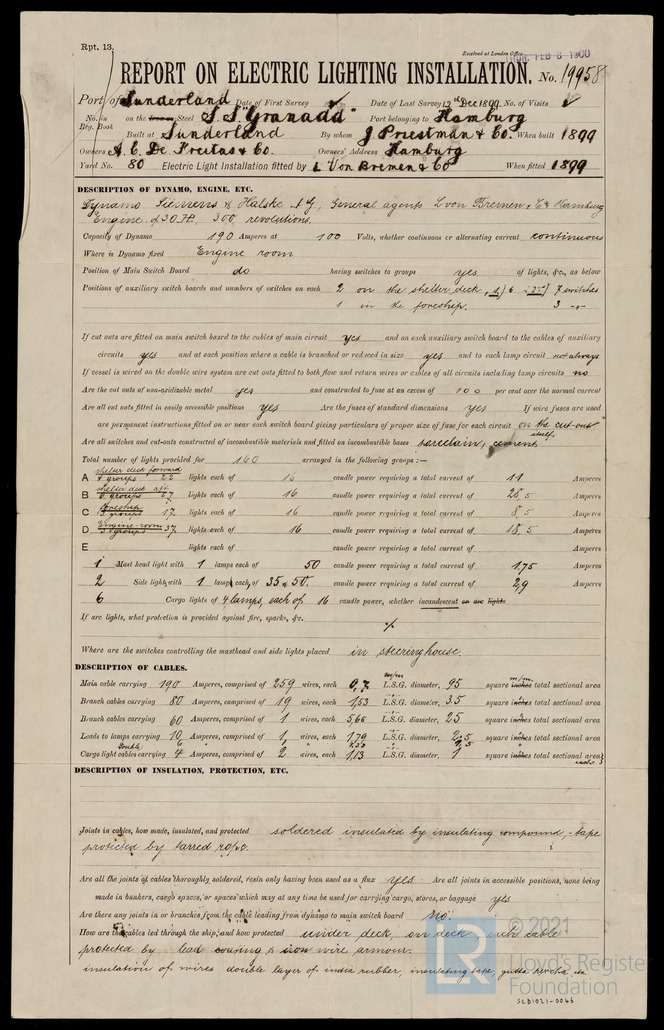 Rpt. 13.
Received at London Office
THUR. FEB 8 1900
REPORT ON ELECTRIC LIGHTING INSTALLATION. No. 19958
Port of Sunderland Date of First Survey Date of Last Survey 12th Dec 1899 No. of Visits
No. in Reg. Book on the Iron or Steel S.S. "Granada" Port belonging to Hamburg
Built at Sunderland By whom J. Priestman & Co. When built 1899
Owners A. C. De Freitas & Co. Owners' Address Hamburg
Yard No. 80 Electric Light Installation fitted by L. Von Bremen & Co When fitted 1899
DESCRIPTION OF DYNAMO, ENGINE, ETC.
Dynamo Siemens & Halske A.G., General agents L. von Bremen & Co Hamburg
Engine of 30 H., 300 revolutions.
Capacity of Dynamo 190 Amperes at 100 Volts, whether continuous or alternating current continuous
Where is Dynamo fixed Engine room
Position of Main Switch Board do having switches to groups yes of lights, &c., as below
Positions of auxiliary switch boards and numbers of switches on each 2 on the shelter deck, 7 switches
1 in the foreship. 3
If cut outs are fitted on main switch board to the cables of main circuit yes and on each auxiliary switch board to the cables of auxiliary
circuits yes and at each position where a cable is branched or reduced in size yes and to each lamp circuit not always
If vessel is wired on the double wire system are cut outs fitted to both flow and return wires or cables of all circuits including lamp circuits no
Are the cut outs of non-oxidizable metal yes and constructed to fuse at an excess of 100 per cent over the normal current
Are all cut outs fitted in easily accessible positions yes Are the fuses of standard dimensions yes If wire fuses are used
are permanent instructions fitted on or near each switch board giving particulars of proper size of fuse for each circuit on the cut-out itself.
Are all switches and cut-outs constructed of incombustible materials and fitted on incombustible bases porcelain, cement
Total number of lights provided for 160 arranged in the following groups :—
shelter deck forward
A 4 groups 22 lights each of 16 candle power requiring a total current of 11 Amperes
shelter deck aft
B 6 groups 57 lights each of 16 candle power requiring a total current of 28,5 Amperes
foreship
C 3 groups 17 lights each of 16 candle power requiring a total current of 8,5 Amperes
Engine-room
D 3 groups 37 lights each of 16 candle power requiring a total current of 18,5 Amperes
E lights each of candle power requiring a total current of Amperes
1 Mast head light with 1 lamps each of 50 candle power requiring a total current of 1,75 Amperes
2 Side light with 1 lamps each of 35 & 50. candle power requiring a total current of 2,9 Amperes
6 Cargo lights of 4 lamps, each of 16 candle power, whether incandescent or arc lights
If arc lights, what protection is provided against fire, sparks, &c.
Where are the switches controlling the masthead and side lights placed in steeringhouse.
DESCRIPTION OF CABLES.
Main cable carrying 190 Amperes, comprised of 259 wires, each 0,7 L.S.G. diameter, 95 square inches total sectional area
Branch cables carrying 80 Amperes, comprised of 19 wires, each 1,53 L.S.G. diameter, 35 square inches total sectional area
Branch cables carrying 60 Amperes, comprised of 1 wires, each 5,66 L.S.G. diameter, 25 square inches total sectional area
Leads to lamps carrying 10 Amperes, comprised of 1 wires, each 1,79 L.S.G. diameter, 2,5 square inches total sectional area
Cargo light cables carrying 4 Amperes, comprised of 2 wires, each 1,13 L.S.G. diameter, 1 square inches total sectional area
DESCRIPTION OF INSULATION, PROTECTION, ETC.
Joints in cables, how made, insulated, and protected soldered insulated by insulating compound, tape
protected by tarred rope.
Are all the joints of cables thoroughly soldered, resin only having been used as a flux yes Are all joints in accessible positions, none being
made in bunkers, cargo spaces, or spaces which may at any time be used for carrying cargo, stores, or baggage yes
Are there any joints in or branches from the cable leading from dynamo to main switch board no.
How are the cables led through the ship, and how protected under deck, on deck with cable
protected by lead covering & iron wire armour.
insulation of wires double layer of india rubber, insulating tape, gutta percha in
© 2021
LR
Lloyd's Register
Foundation
SLD1021-0066